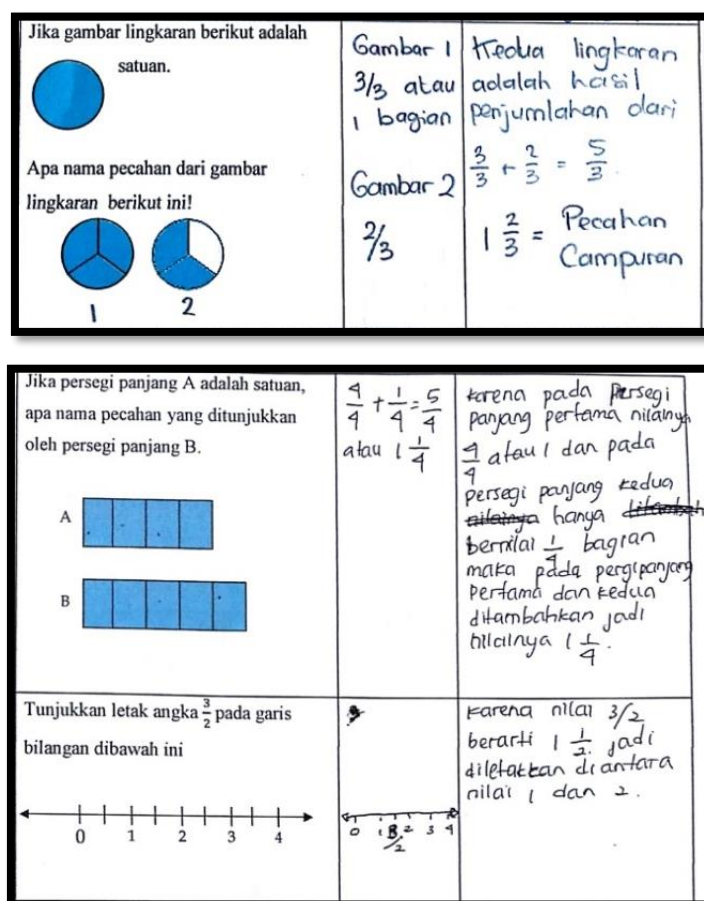 Jika gambar lingkaran berikut adalah
satuan.
Apa nama pecahan dari gambar
lingkaran berikut ini!
1 2
Gambar 1
3/3 atau
1 bagian
Gambar 2
2/3
Kedua lingkaran
adalah hasil
penjumlahan dari
3/3 + 2/3 = 5/3.
1 2/3 = Pecahan
Campuran
Jika persegi panjang A adalah satuan,
apa nama pecahan yang ditunjukkan
oleh persegi panjang B.
A
B
4/4 + 1/4 = 5/4
atau 1 1/4
karena pada persegi
panjang pertama nilainya
4/4 atau 1 dan pada
persegi panjang kedua
nilainya hanya
bernilai 1/4 bagian
maka pada pergipanjang
Pertama dan kedua
ditambahkan jadi
nilainya 1 1/4.
Tunjukkan letak angka 3/2 pada garis
bilangan dibawah ini
0 1 2 3 4
0 1 3/2 2 3 4
karena nilai 3/2
berarti 1 1/2. jadi
diletakkan diantara
nilai 1 dan 2.